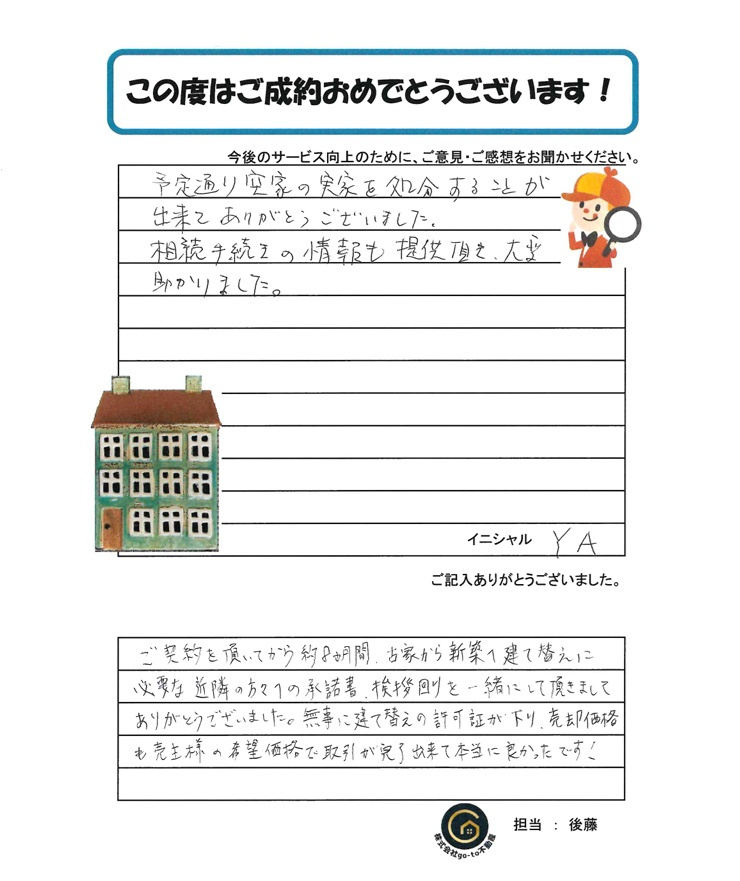 この度はご成約おめでとうございます！
今後のサービス向上のために、ご意見・ご感想をお聞かせください。
予定通り空家の実家を処分することが
出来てありがとうございました。
相続手続きの情報も提供頂き、大変
助かりました。
イニシャル YA
ご記入ありがとうございました。
ご契約を頂いてから約8か月間、古家から新築へ建て替えに
必要な近隣の方々への承諾書、挨拶回りを一緒にして頂きまして
ありがとうございました。無事に建て替えの許可証が下り、売却価格
も売主様の希望価格で取引が完了出来て本当に良かったです！
株式会社go-to不動産
担当 : 後藤